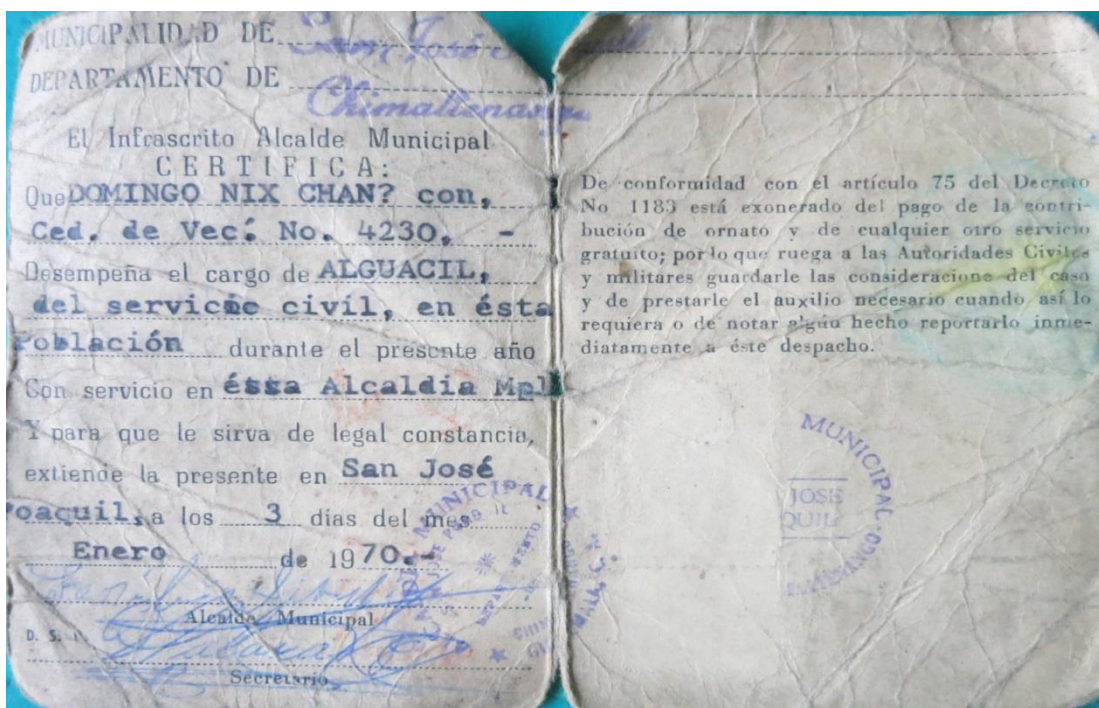 MUNICIPALIDAD DE San José
DEPARTAMENTO DE
Chimaltenango
El Infrascrito Alcalde Municipal
CERTIFICA:
Que DOMINGO NIX CHAN? con,
Ced. de Vec. No. 4230, -
Desempeña el cargo de ALGUACIL,
del servicio civil, en ésta
Población durante el presente año
Con servicio en éssa Alcaldia Mpl
Y para que le sirva de legal constancia,
extiende la presente en San José
Poaquil, a los 3 dias del mes
Enero de 1970.-
Alcalde Municipal
Secretario
De conformidad con el artículo 75 del Decreto
No 1183 está exonerado del pago de la contri-
bución de ornato y de cualquier otro servicio
gratuito; por lo que ruega a las Autoridades Civiles
y militares guardarle las consideracione del caso
y de prestarle el auxilio necesario cuando así lo
requiera o de notar algún hecho reportarlo inme-
diatamente a éste despacho.
MUNICIPAL
JOSE
QUIL